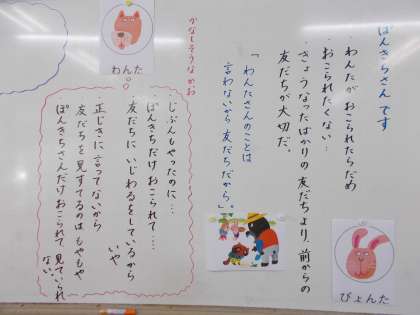 ぽんきちさんです
・わんたがおこられたらだめ
・おこられたくない…
・きょうなったばかりの友だちより、前からの
友だちが大切だ。
「わんたさんのことは
言わないから友だちだから」。
ぴょんた
かなしそうなかお
わんた
じぶんもやったのに…
ぽんきちだけおこられて…
友だちにいじわるをしているから
いや
正じきに言ってないから
友だちを見すてるのはもやもや
ぽんきちさんだけおこられて見ていられ
ない。